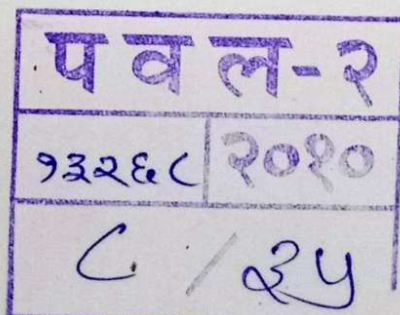 प व ल - २
१३२६८ २०१०
८ / ३५